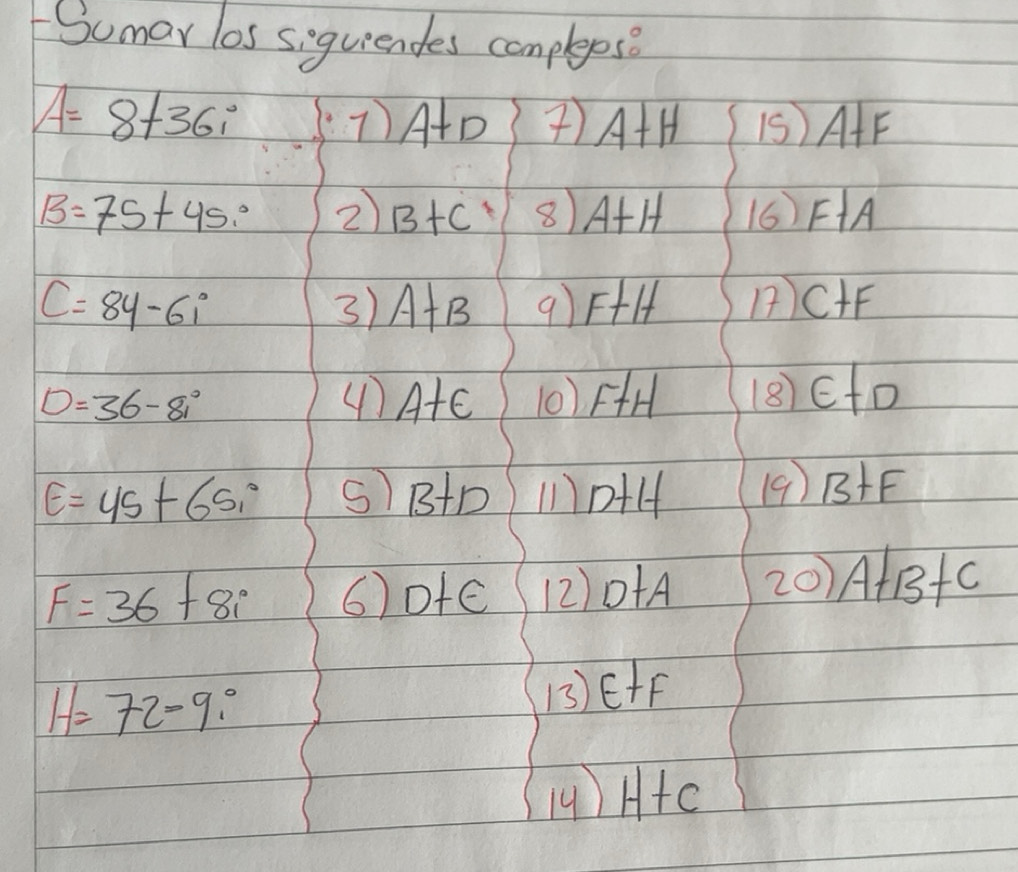 -Sumar los siguiendes complejos:
A= 8+36i 1) A+D 7) A+H 15) A+F
B= 75+45i 2) B+C 8) A+H 16) F+A
C= 84-6i 3) A+B 9) F+H 17) C+F
D= 36-8i 4) A+E 10) F+H 18) E+D
E= 45+65i 5) B+D 11) D+H 19) B+F
F= 36+8i 6) D+E 12) D+A 20) A+B+C
H= 72-9i 13) E+F
14) H+C